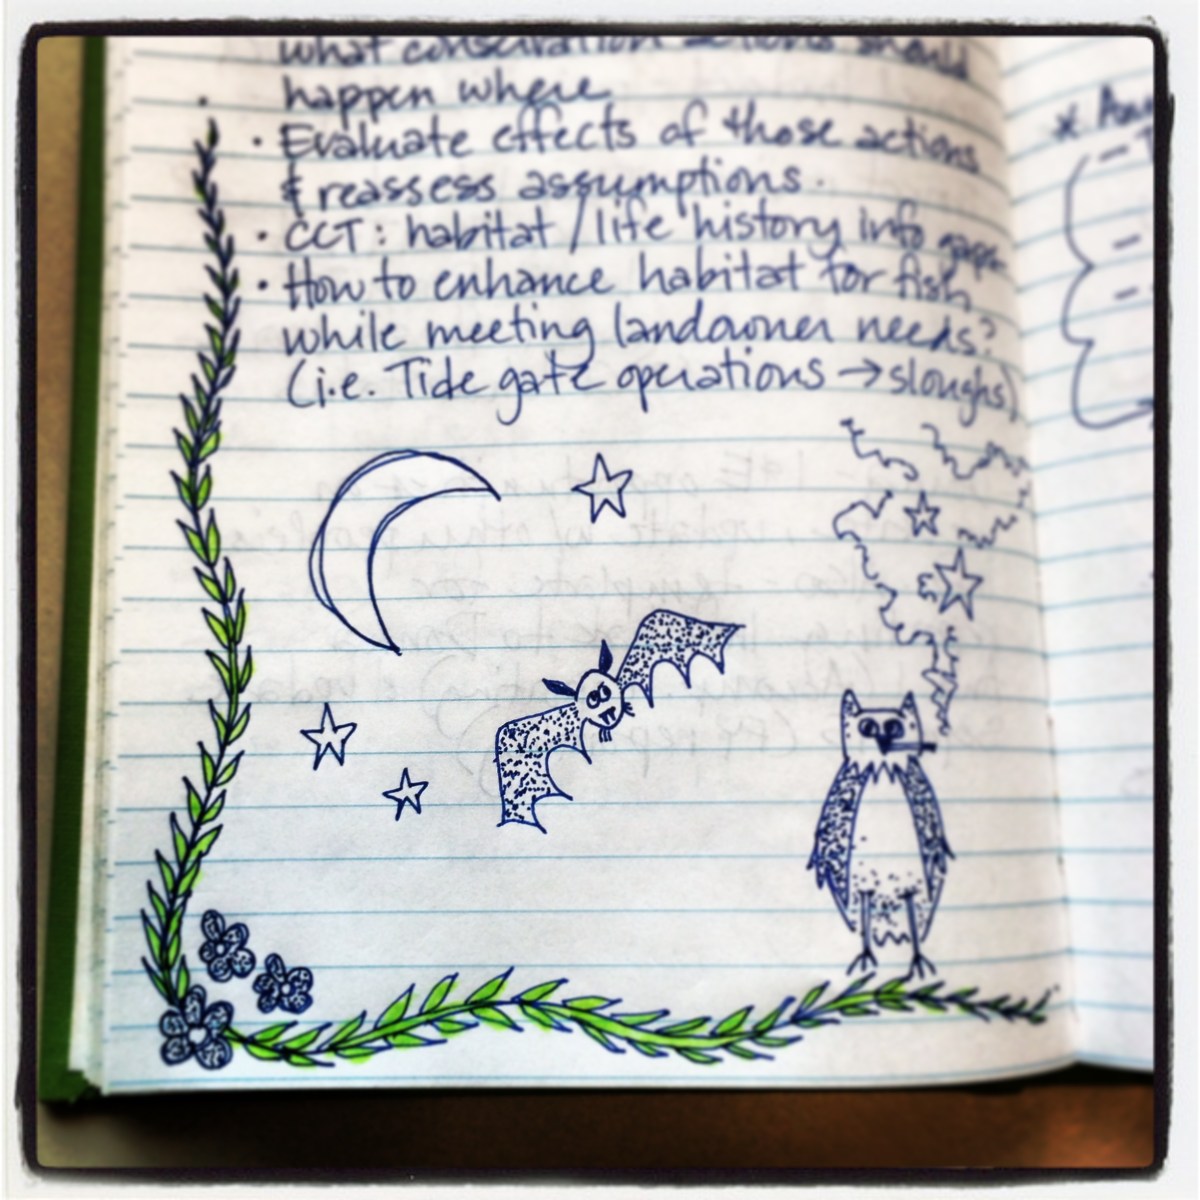 what conservation actions should
happen where
• Evaluate effects of those actions
& reassess assumptions.
• CCT: habitat / life history info gaps
• How to enhance habitat for fish
while meeting landowner needs?
(i.e. Tide gate operations → sloughs)
*